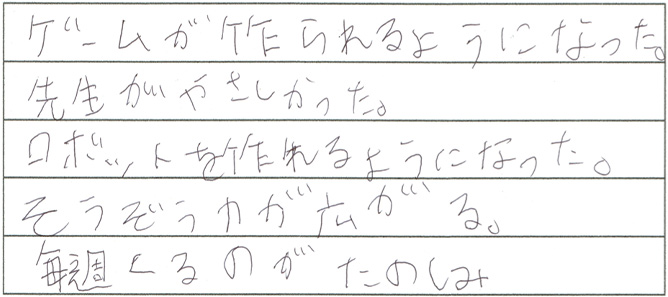 ゲームが作られるようになった。
先生がやさしかった。
ロボットを作れるようになった。
そうぞう力が広がる。
毎週くるのがたのしみ